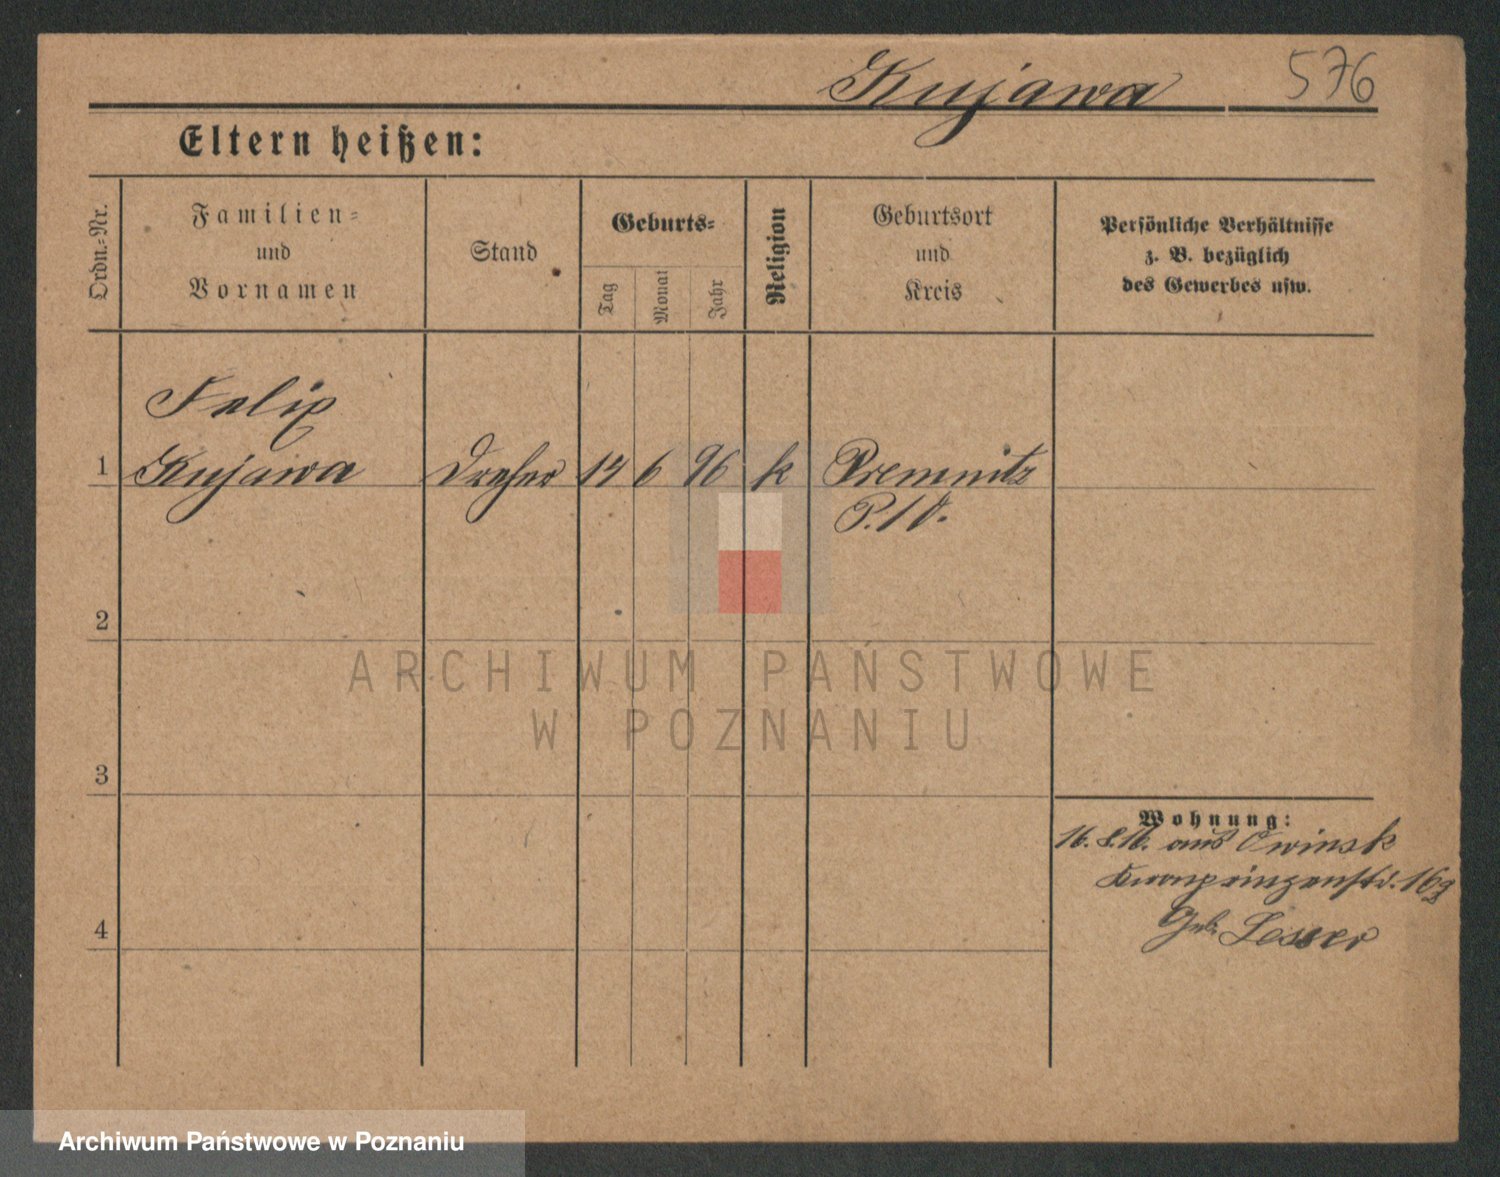 Kujawa 576
Eltern heißen:
Ordn.=Nr.
Familien=
und
Vornamen
Stand
Geburts=
Tag
Monat
Jahr
Religion
Geburtsort
und
Kreis
Persönliche Verhältnisse
z. B. bezüglich
des Gewerbes usw.
Felix
1 Kujawa Dreher 14 6 96 k Premnitz
P. 10.
2
3
4
Wohnung:
16.8.16. aus Owinsk
Kronprinzenstr. 16
Lesser
ARCHIWUM PAŃSTWOWE
W POZNANIU
Archiwum Państwowe w Poznaniu